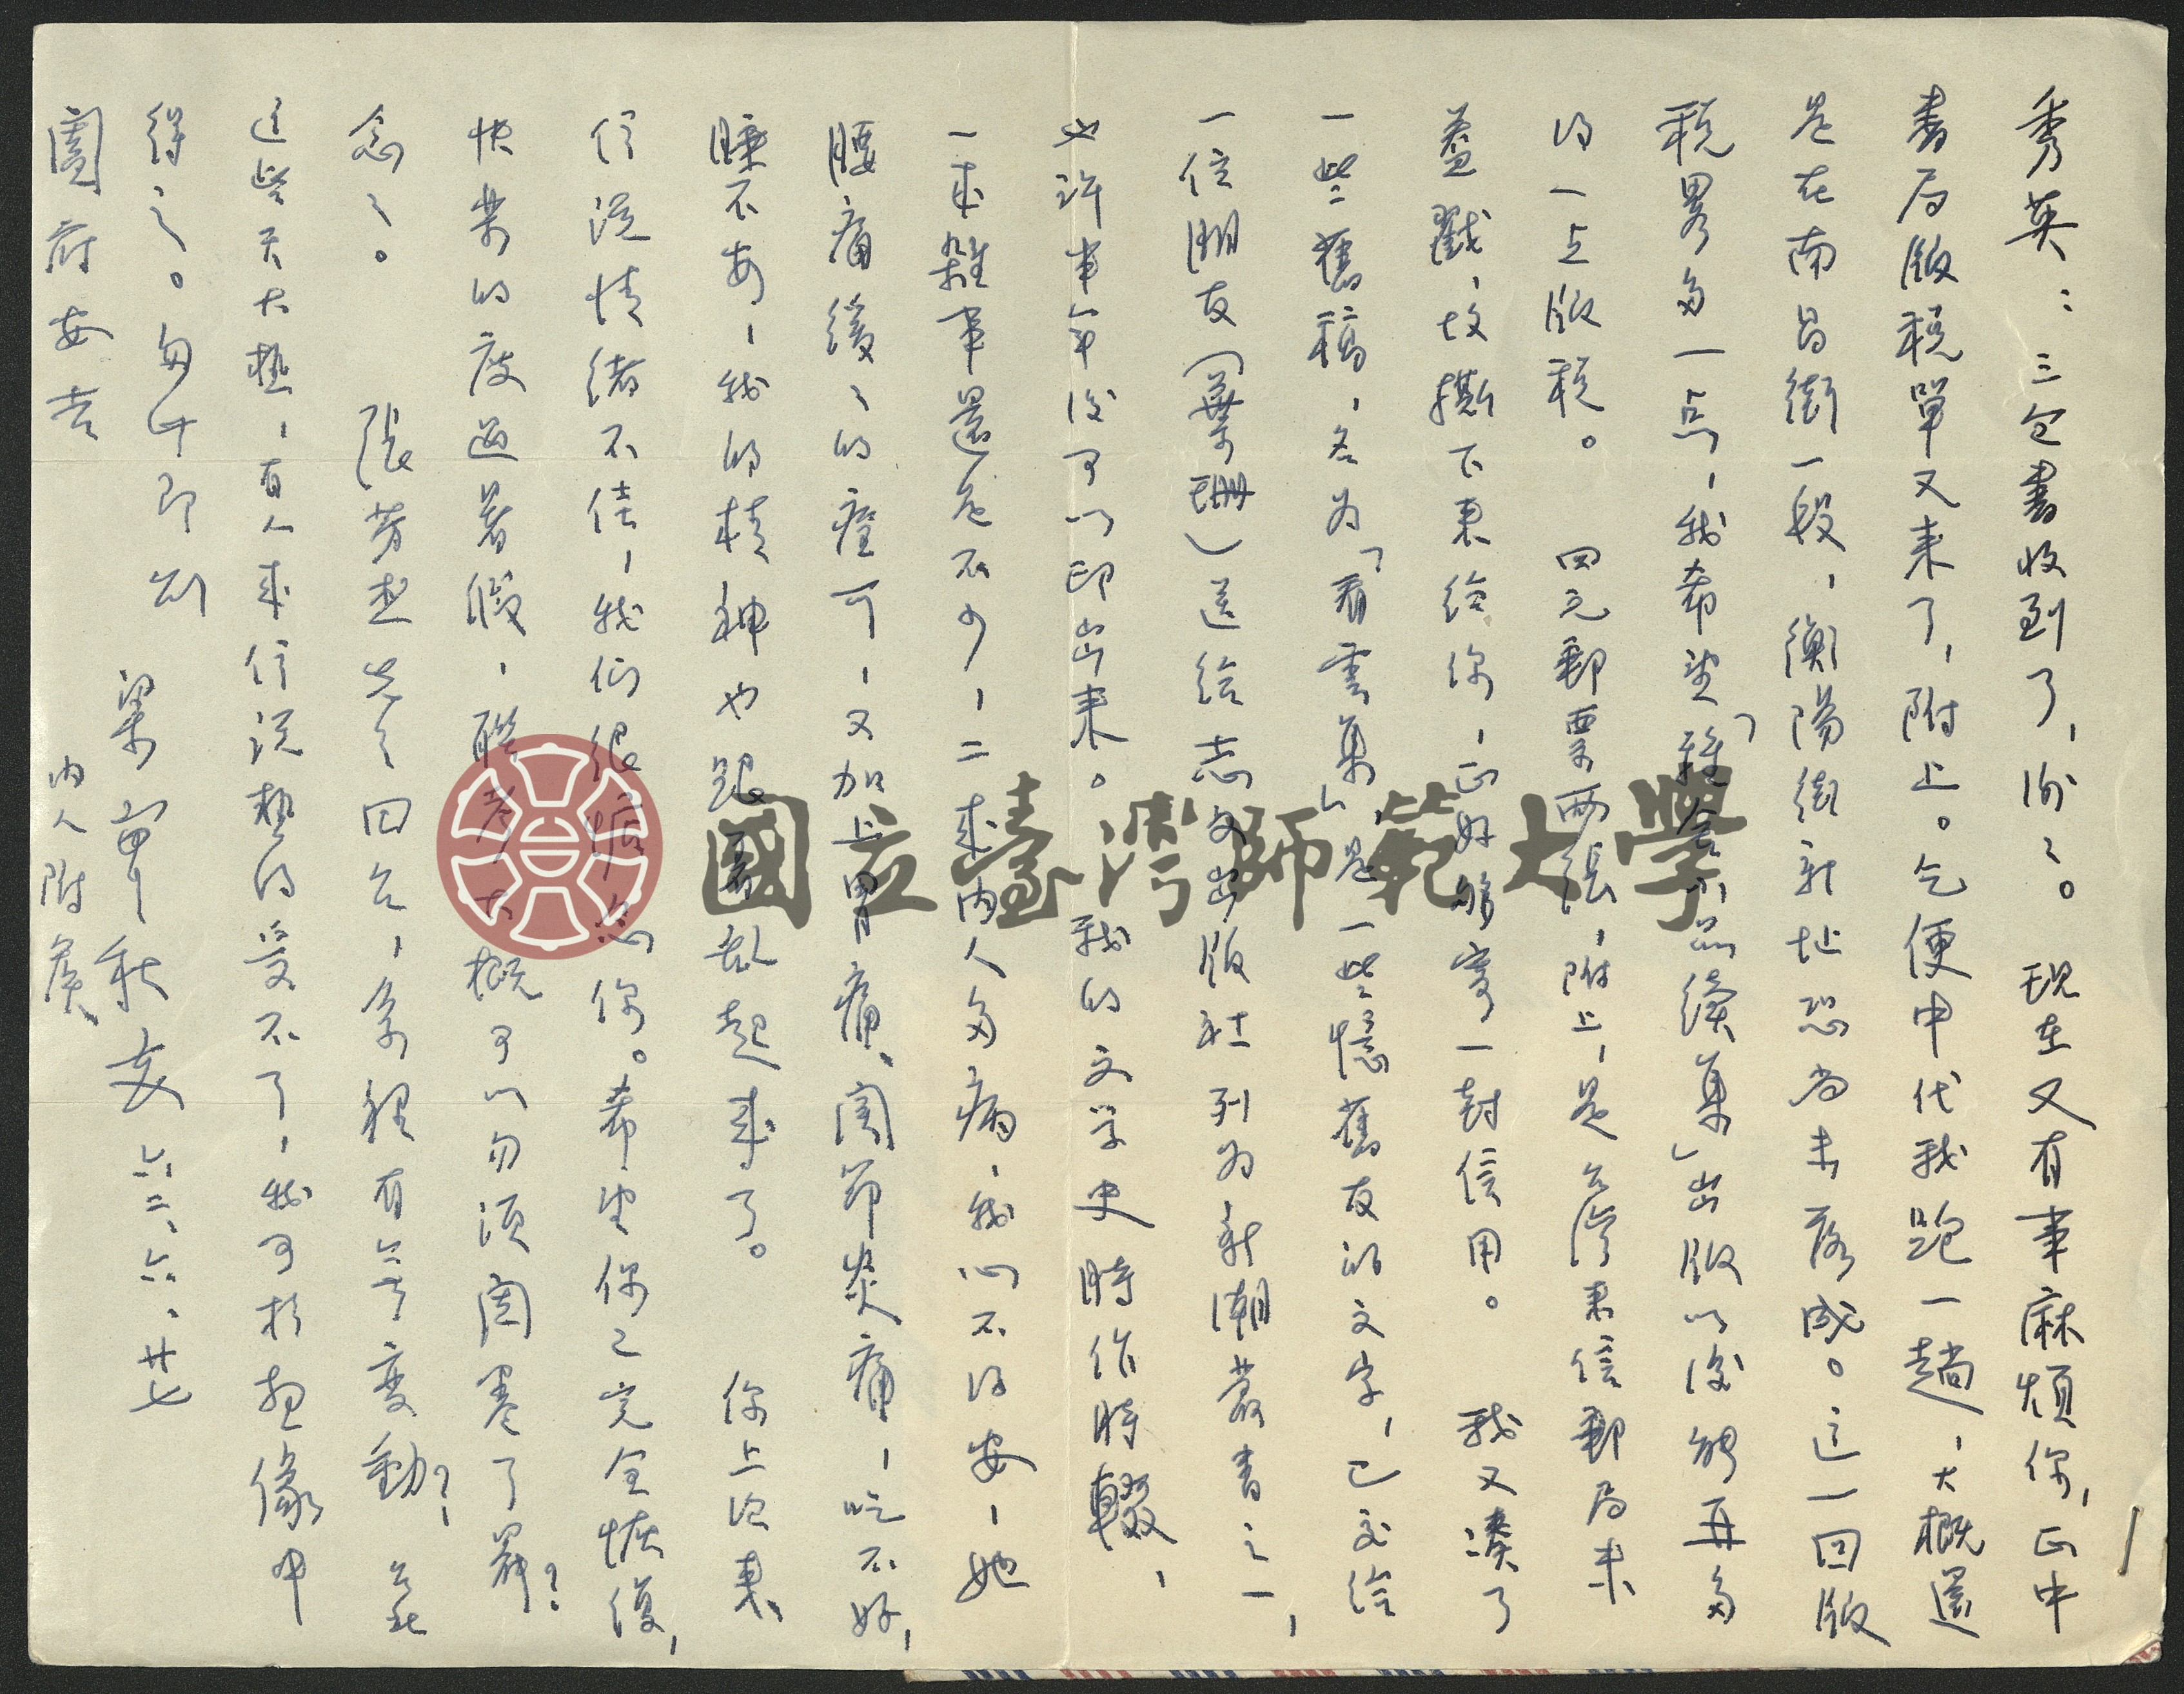 秀英：三包書收到了，謝謝。現在又有事麻煩你，正中
書局版稅單又來了，附上。乞便中代我跑一趟，大概還
是在南昌街一段，衡陽街新址恐尚未落成。這一回版
稅畧多一点，我希望「雅舍小品續集」出版以後能再多
的一点版稅。 四元郵票兩張，附上，是台灣來信郵局未
蓋戳，故撕下來給你，正好够寄一封信用。 我又湊了
一些舊稿，名為「看雲集」，是一些憶舊友的文字，已交給
一位朋友（葉珊）送給志文出版社列為新潮叢書之一，
也許半年后可以印出來。 我的文学史時作時輟，
一來雜事還是不少，二來內人多病，我心不得安，她
腰痛緩緩的痊可，又加上胃痛、關節炎痛，吃不好，
睡不安，我的精神也跟著乱起來了。 你上次來
信說情緒不佳，我们很惦念你。希望你已完全恢復，
快樂的度過暑假，聯考大概可以勿須闈裏了罷？
念念。 張芳杰先生回台，系裡有無變動？ 台北
這些天大熱，有人來信說熱的受不了，我可於想像中
得之。匆匆即頌
闔府安吉 梁實秋 六二、六、廿七
內人附候
國立臺灣師範大學